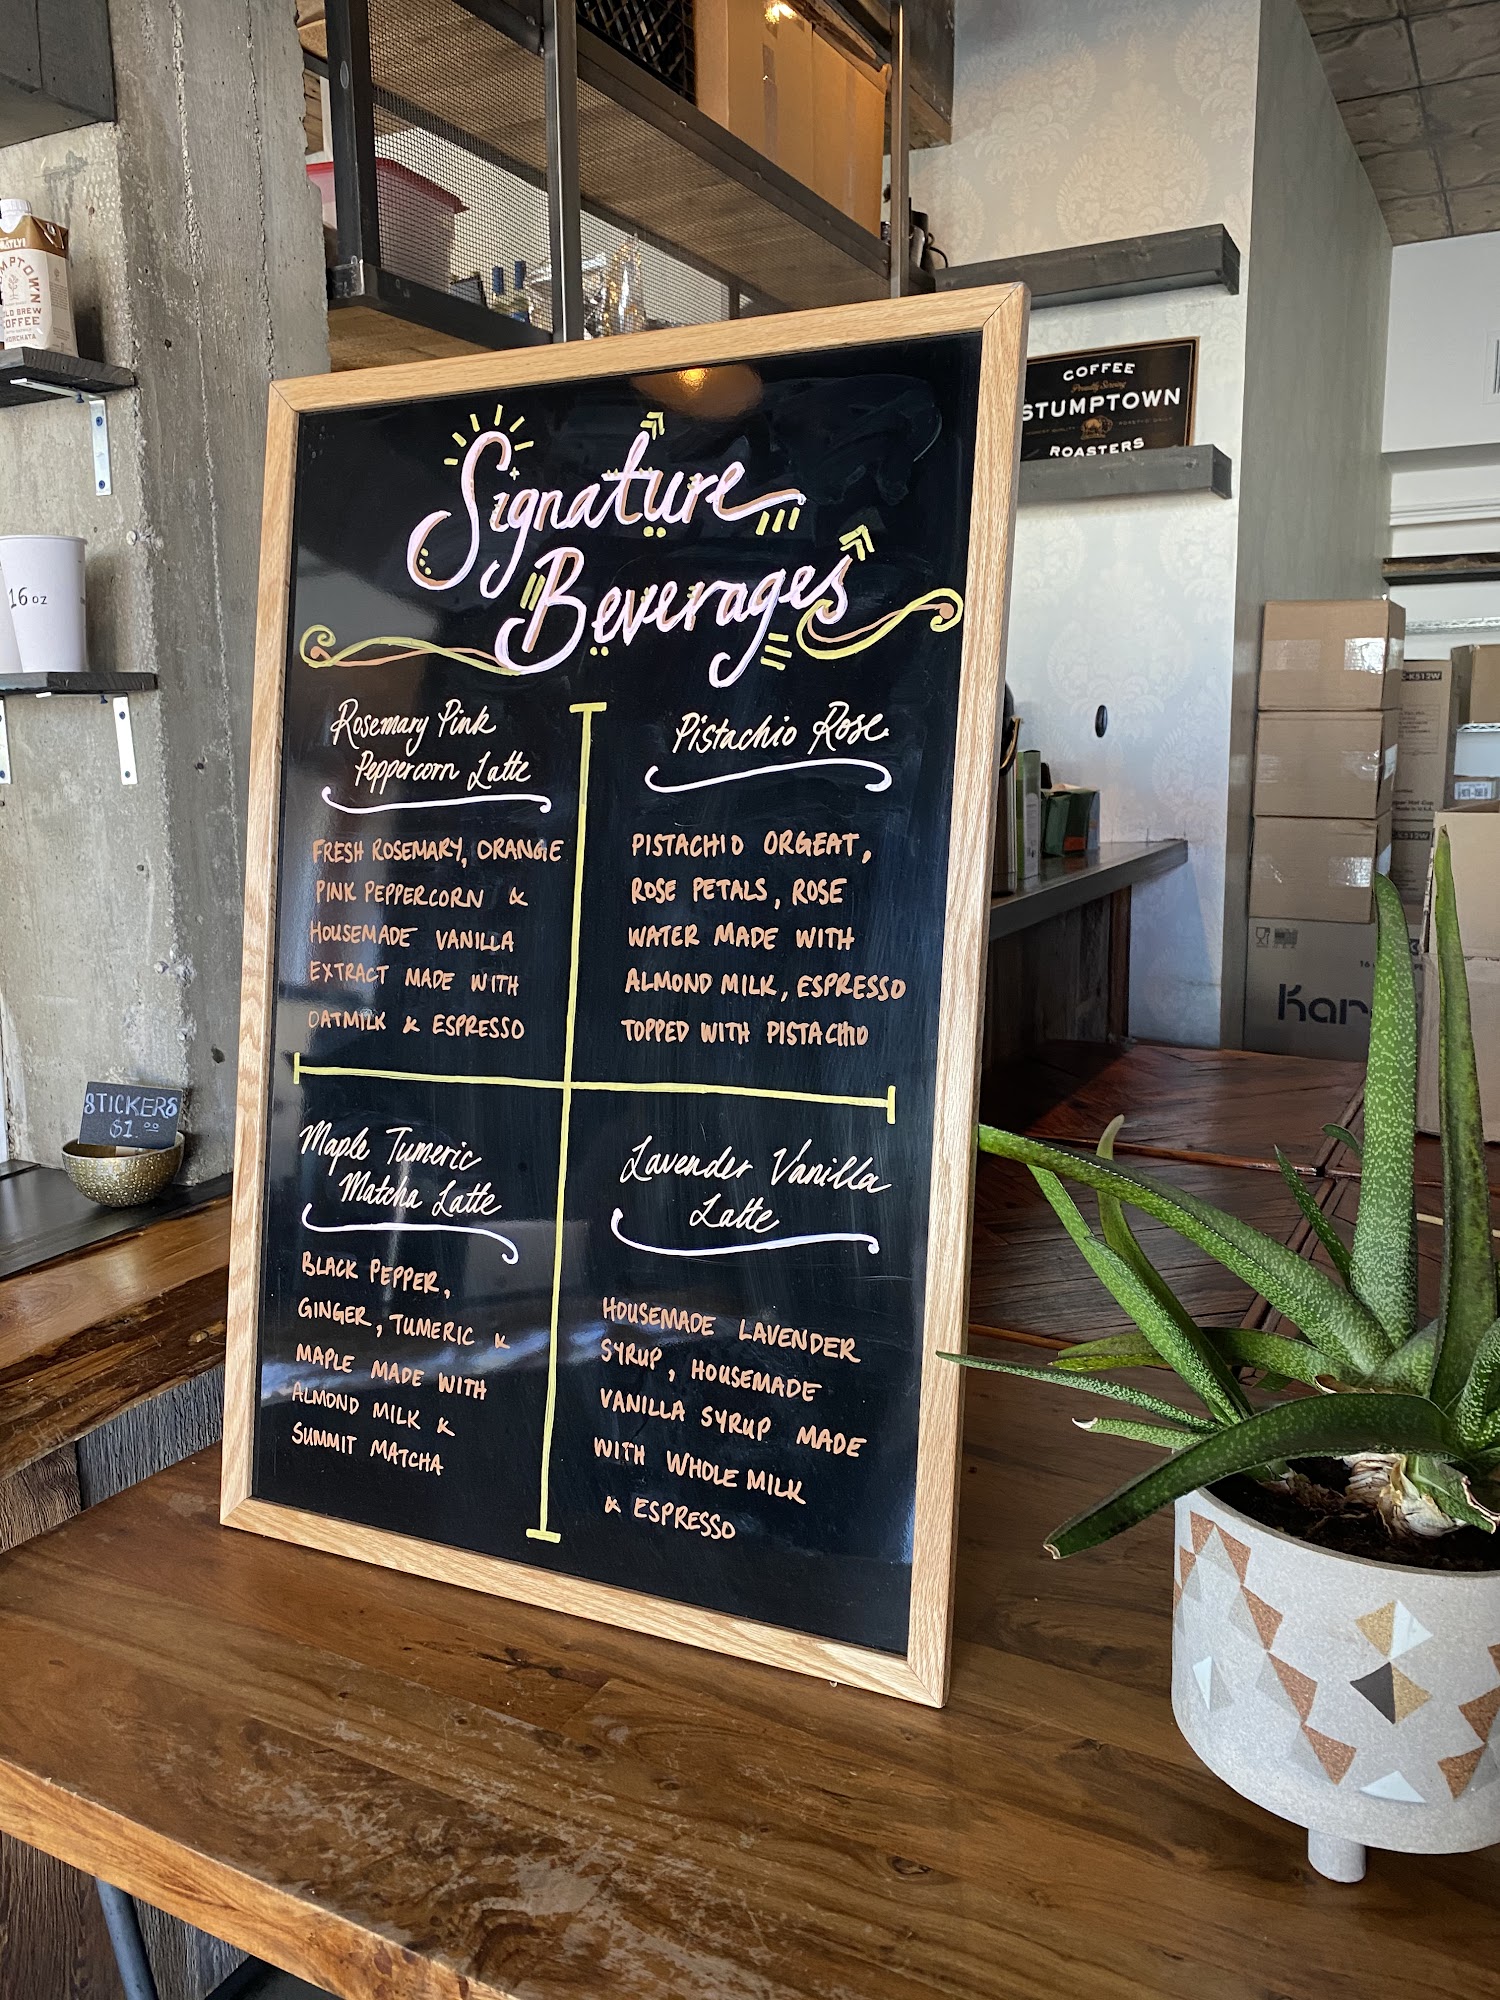 Signature
Beverages
Rosemary Pink
Peppercorn Latte
FRESH ROSEMARY, ORANGE
PINK PEPPERCORN &
HOUSEMADE VANILLA
EXTRACT MADE WITH
OATMILK & ESPRESSO
Pistachio Rose
PISTACHIO ORGEAT,
ROSE PETALS, ROSE
WATER MADE WITH
ALMOND MILK, ESPRESSO
TOPPED WITH PISTACHIO
Maple Tumeric
Matcha Latte
BLACK PEPPER,
GINGER, TUMERIC &
MAPLE MADE WITH
ALMOND MILK &
SUMMIT MATCHA
Lavender Vanilla
Latte
HOUSEMADE LAVENDER
SYRUP, HOUSEMADE
VANILLA SYRUP MADE
WITH WHOLE MILK
& ESPRESSO
COFFEE
Proudly Serving
STUMPTOWN
ROASTERS
16 oz
STICKERS
$1.00
COFFEE